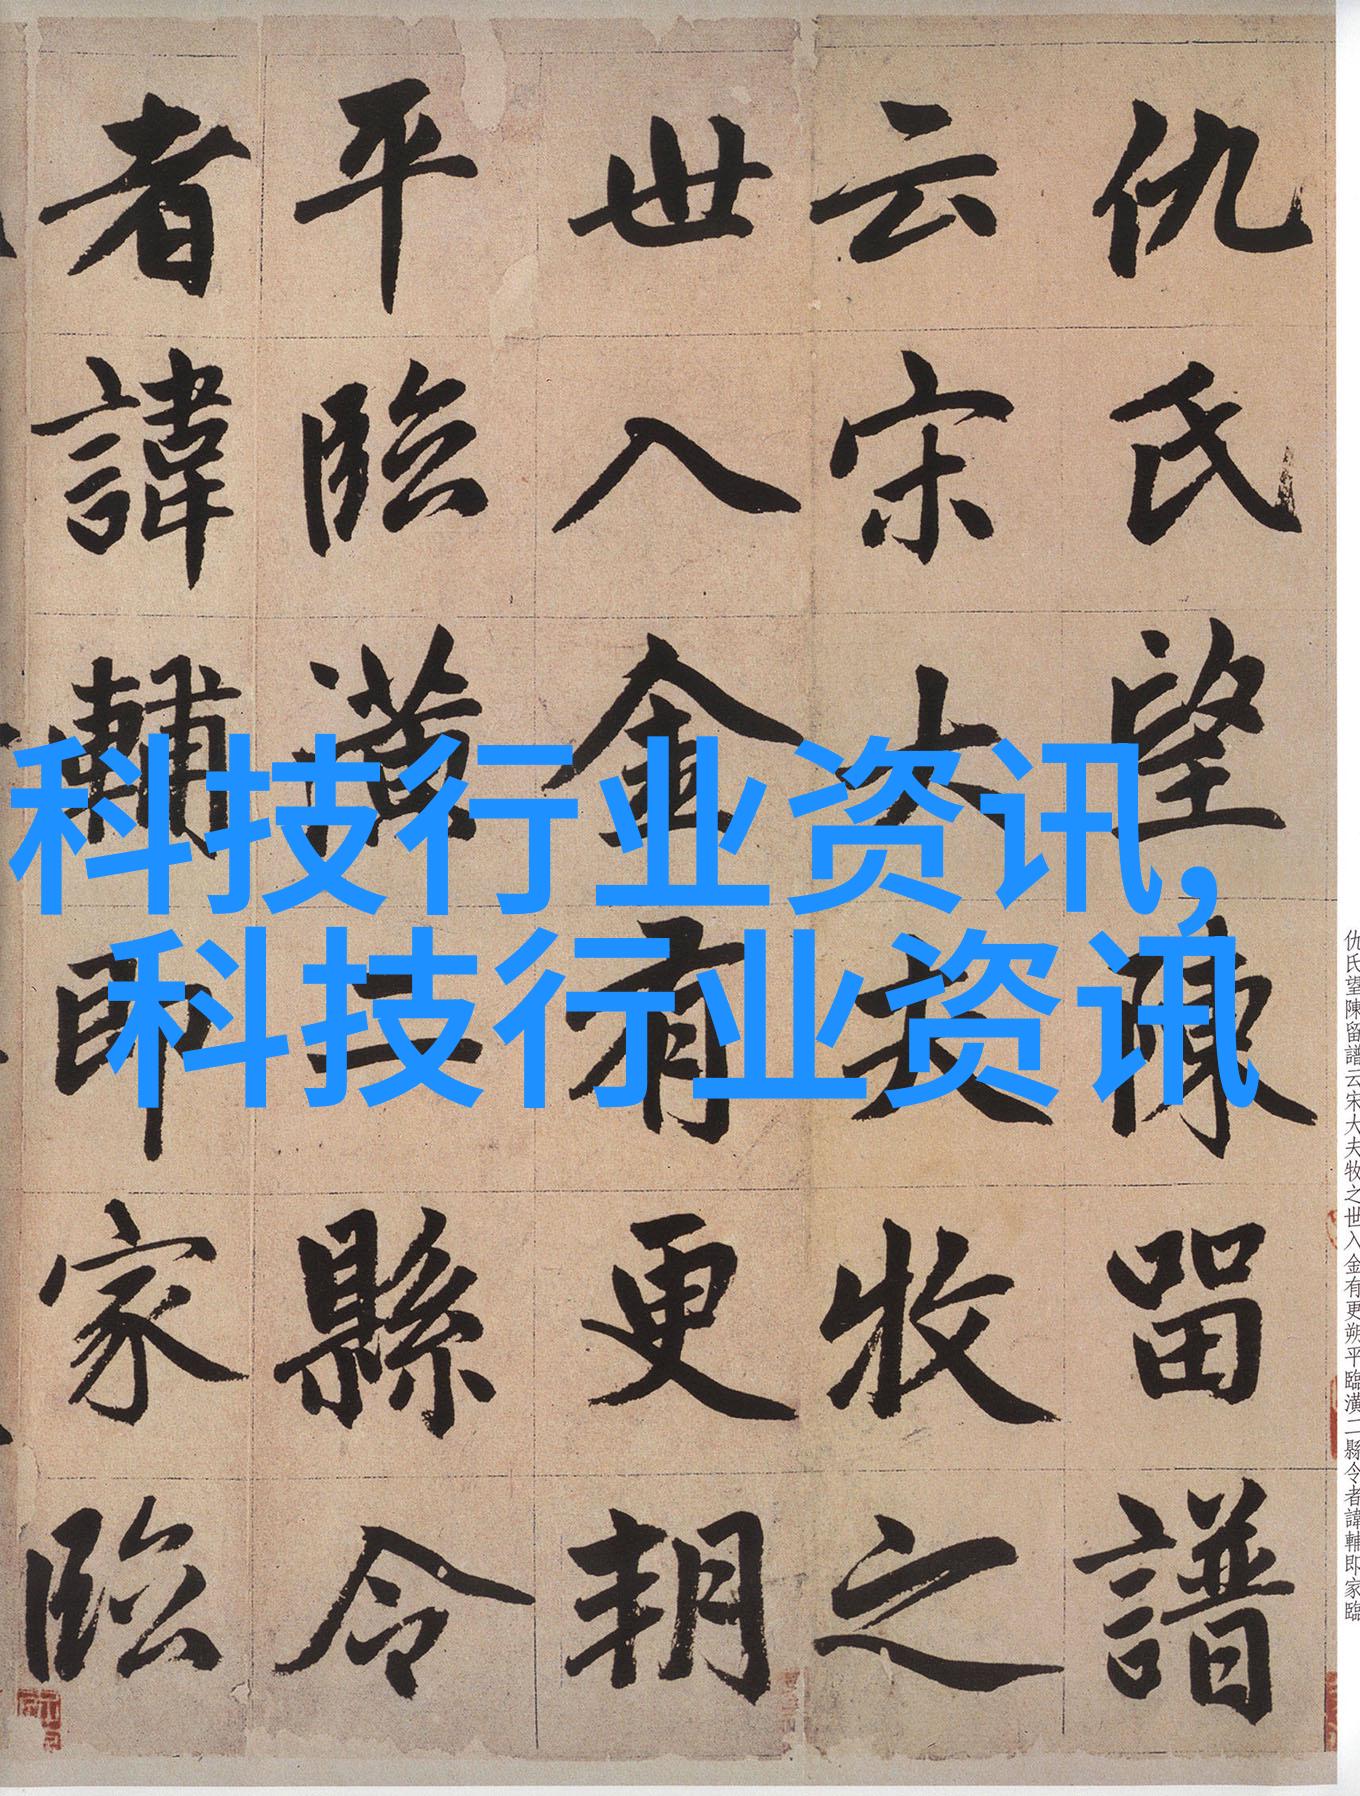 仇氏望陳留譜
云宋大夫牧之
世入金有更朔
平臨潢二縣令
者諱輔即家臨
科技行业资讯,
科技行业资讯
仇氏望陳留譜云宋大夫牧之世入金有更朔平臨潢二縣令者諱輔即家臨